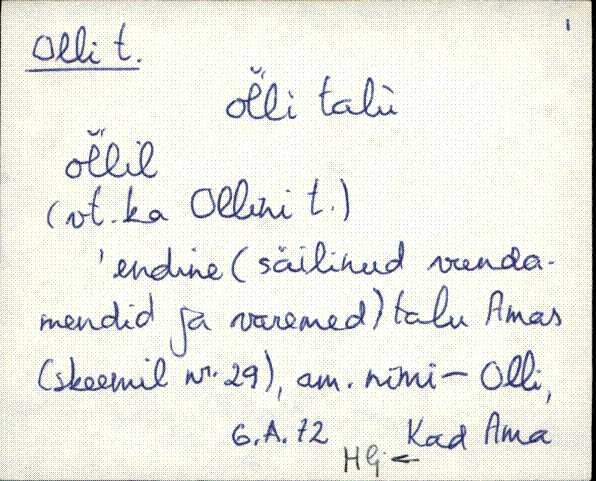 1
Olli t.
ol̆̀li talù
ol̆̀lil
(vt. ka Ollini t.)
'endine (säilinud vunda-
mendid ja varemed) talu Amas
(skeemil nr. 29), am. nimi - Olli,
G.A. 72 Kad Ama
HG ←